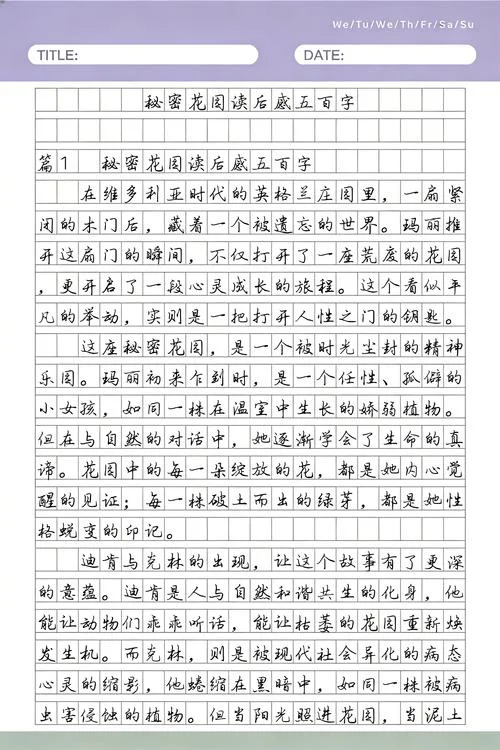 We/Tu/We/Th/Fr/Sa/Su
TITLE: DATE:
秘密花园读后感五百字
篇1 秘密花园读后感五百字
在维多利亚时代的英格兰庄园里，一扇紧
闭的木门后，藏着一个被遗忘的世界。玛丽推
开这扇门的瞬间，不仅打开了一座荒废的花园
，更开启了一段心灵成长的旅程。这个看似平
凡的举动，实则是一把打开人性之门的钥匙。
这座秘密花园，是一个被时光尘封的精神
乐园。玛丽初来乍到时，是一个任性、孤僻的
小女孩，如同一株在温室中生长的娇弱植物。
但在与自然的对话中，她逐渐学会了生命的真
谛。花园中的每一朵绽放的花，都是她内心觉
醒的见证；每一株破土而出的绿芽，都是她性
格蜕变的印记。
迪肯与克林的出现，让这个故事有了更深
的意蕴。迪肯是人与自然和谐共生的化身，他
能让动物们乖乖听话，能让枯萎的花园重新焕
发生机。而克林，则是被现代社会异化的病态
心灵的缩影，他蜷缩在黑暗中，如同一株被病
虫害侵蚀的植物。但当阳光照进花园，当泥土